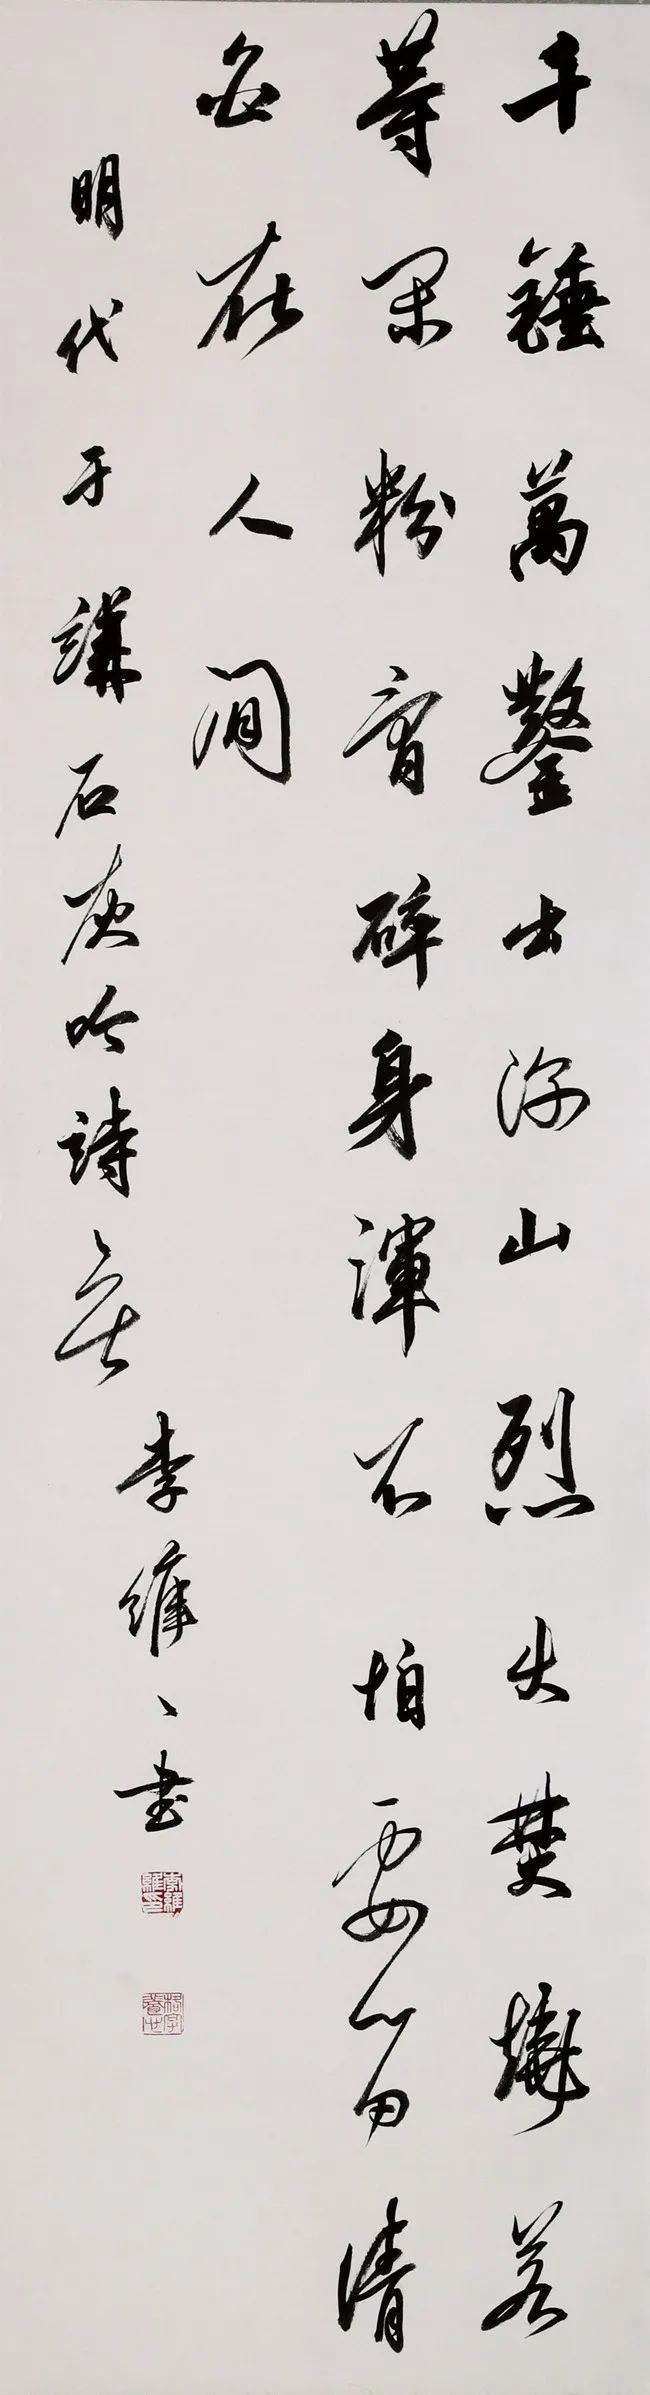 千錘萬鑿出深山烈火焚燒若
等閑粉骨碎身渾不怕要留清
白在人間
明代于謙石灰吟詩
李維〻書
李維維印